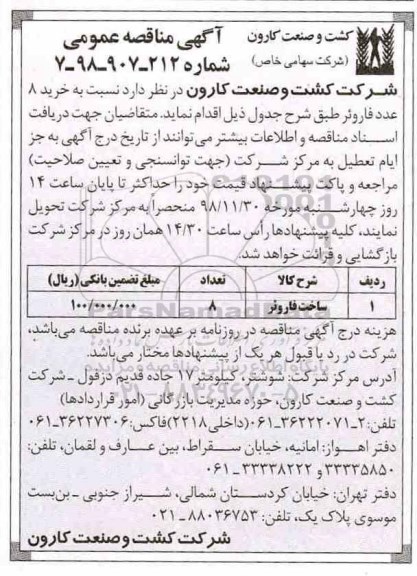 کشت و صنعت کارون
(شرکت سهامی خاص)
آگهی مناقصه عمومی
شماره ۲۱۲-۹۰۷-۹۸-۷
شرکت کشت و صنعت کارون در نظر دارد نسبت به خرید ۸
عدد فاروئر طبق شرح جدول ذیل اقدام نماید. متقاضیان جهت دریافت
اسناد مناقصه و اطلاعات بیشتر می‌توانند از تاریخ درج آگهی به جز
ایام تعطیل به مرکز شرکت (جهت توانسنجی و تعیین صلاحیت)
مراجعه و پاکت پیشنهاد قیمت خود را حداکثر تا پایان ساعت ۱۴
روز چهارشنبه مورخه ۹۸/۱۱/۳۰ منحصراً به مرکز شرکت تحویل
نمایند، کلیه پیشنهادها رأس ساعت ۱۴/۳۰ همان روز در مرکز شرکت
بازگشایی و قرائت خواهد شد.
ردیف شرح کالا تعداد مبلغ تضمین بانکی (ریال)
۱ ساخت فاروئر ۸ ۱۰۰/۰۰۰/۰۰۰
هزینه درج آگهی مناقصه در روزنامه بر عهده برنده مناقصه می‌باشد،
شرکت در رد یا قبول هر یک از پیشنهادها مختار می‌باشد.
آدرس مرکز شرکت: شوشتر، کیلومتر ۱۷ جاده قدیم دزفول ـ شرکت
کشت و صنعت کارون، حوزه مدیریت بازرگانی (امور قراردادها)
تلفن: ۲-۳۶۲۲۲۰۷۱-۰۶۱ (داخلی ۲۲۱۸) فاکس: ۳۶۲۲۷۳۰۶-۰۶۱
دفتر اهواز: امانیه، خیابان سقراط، بین عارف و لقمان، تلفن:
۳۳۳۳۵۸۵۰ و ۳۳۳۳۸۲۲۲-۰۶۱
دفتر تهران: خیابان کردستان شمالی، شیراز جنوبی ـ بن‌بست
موسوی پلاک یک، تلفن: ۸۸۰۳۶۷۵۳-۰۲۱
شرکت کشت و صنعت کارون